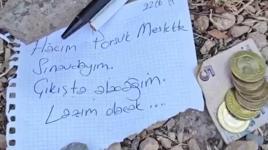 Hacım Porsuk Meslekte
Sınavdayım.
Çıkışta alacağım.
Lazım olacak ...
5